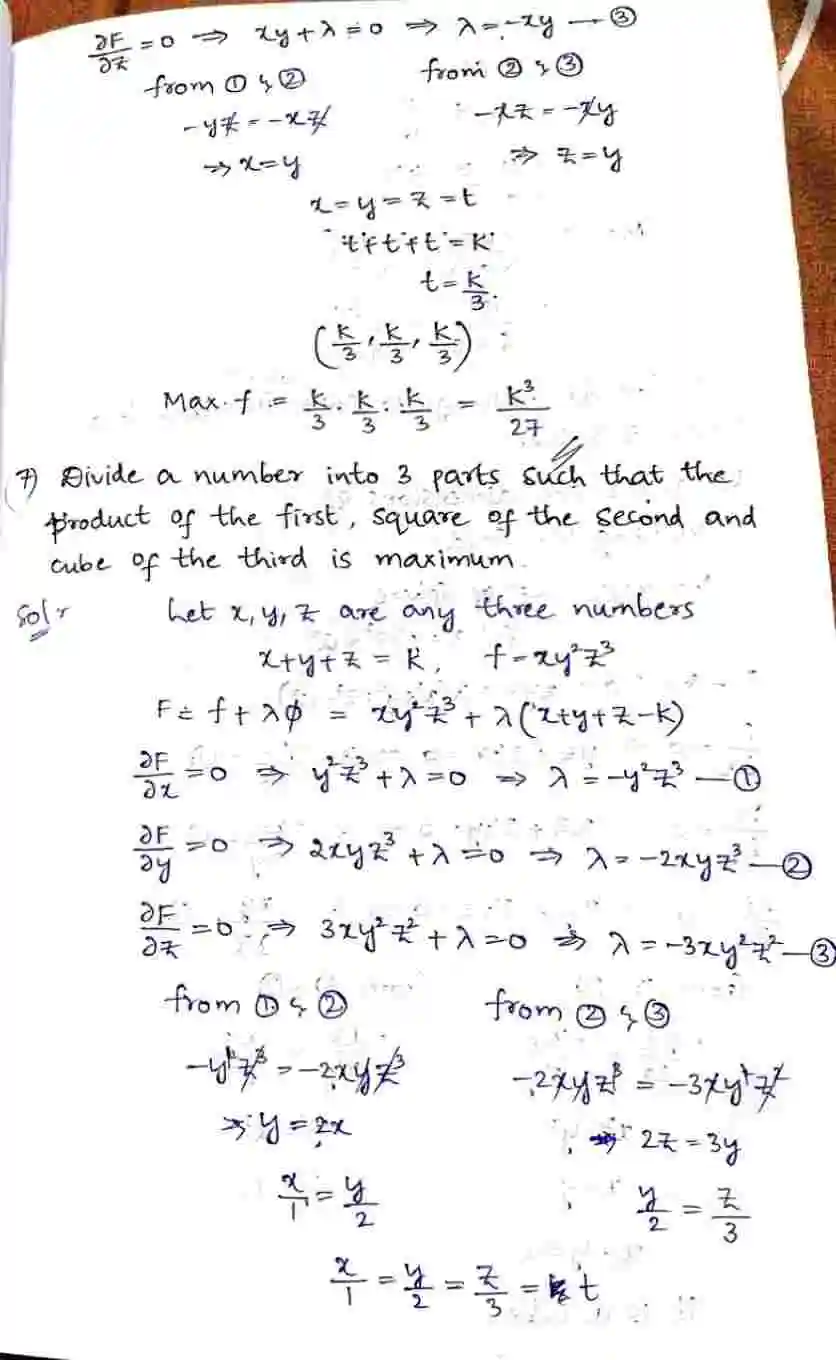 ∂F/∂z = 0 ⇒ xy + λ = 0 ⇒ λ = -xy — ③
from ① & ② from ② & ③
-yz = -xz -xz = -xy
⇒ x = y ⇒ z = y
x = y = z = t
t + t + t = K
t = K/3.
(K/3, K/3, K/3)
Max. f = K/3 . K/3 . K/3 = K³/27
7) Divide a number into 3 parts such that the
product of the first, square of the second and
cube of the third is maximum.
Sol:- Let x, y, z are any three numbers
x+y+z = K, f = xy²z³
F = f + λϕ = xy²z³ + λ(x+y+z-K)
∂F/∂x = 0 ⇒ y²z³ + λ = 0 ⇒ λ = -y²z³ — ①
∂F/∂y = 0 ⇒ 2xyz³ + λ = 0 ⇒ λ = -2xyz³ — ②
∂F/∂z = 0 ⇒ 3xy²z² + λ = 0 ⇒ λ = -3xy²z² — ③
from ① & ② from ② & ③
-y²z³ = -2xyz³ -2xyz³ = -3xy²z²
⇒ y = 2x ⇒ 2z = 3y
x/1 = y/2 y/2 = z/3
x/1 = y/2 = z/3 = t